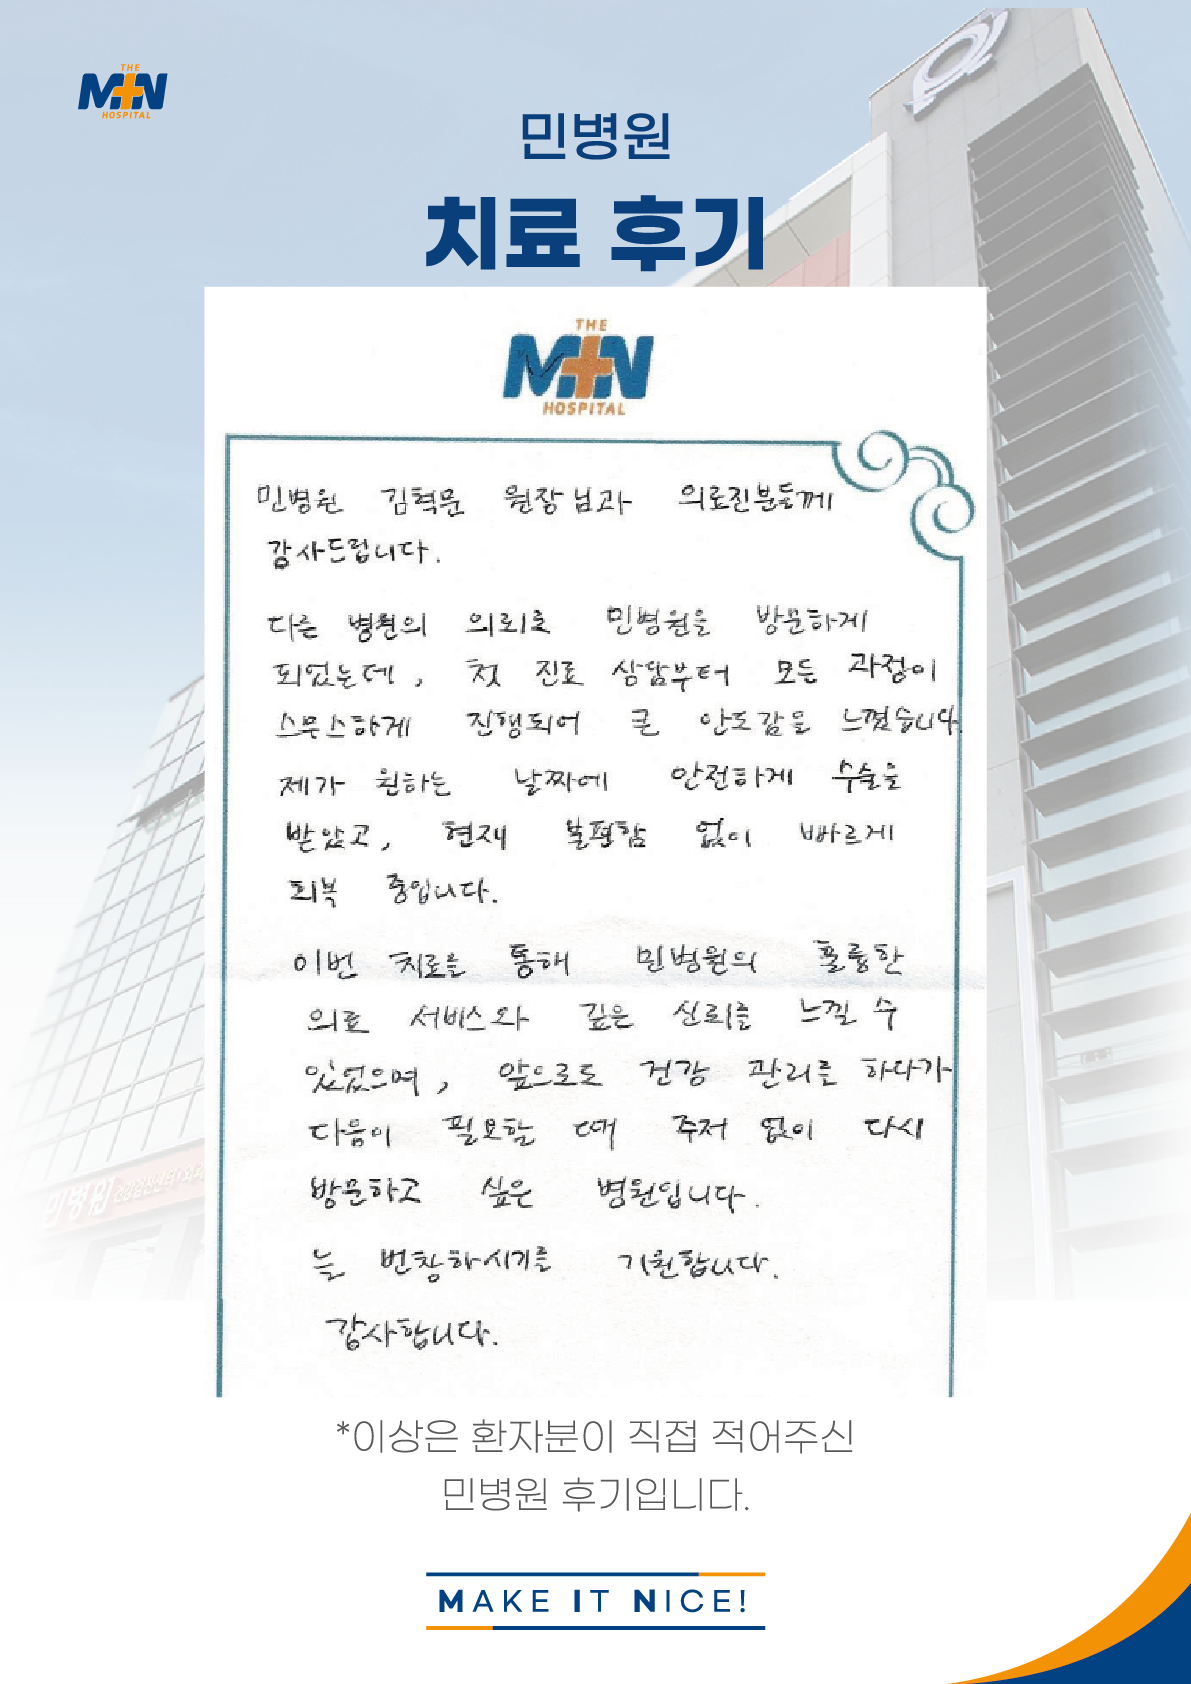 THE
MIN
HOSPITAL
민병원
치료 후기
THE
MIN
HOSPITAL
민병원 김혁문 원장님과 의료진분들께
감사드립니다.
다른 병원의 의뢰로 민병원을 방문하게
되었는데, 첫 진료 상담부터 모든 과정이
스무스하게 진행되어 큰 안도감을 느꼈습니다.
제가 원하는 날짜에 안전하게 수술을
받았고, 현재 불편함 없이 빠르게
회복 중입니다.
이번 치료를 통해 민병원의 훌륭한
의료 서비스와 깊은 신뢰를 느낄 수
있었으며, 앞으로도 건강 관리를 하다가
다음이 필요할 때 주저 없이 다시
방문하고 싶은 병원입니다.
늘 번창하시기를 기원합니다.
감사합니다.
민병원
*이상은 환자분이 직접 적어주신
민병원 후기입니다.
MAKE IT NICE!